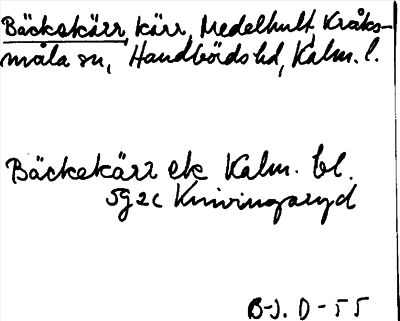 Bäckekärr, kärr, Medelhult, Kråks-
måla sn, Handbörds hd, Kalm. l.
Bäckekärr ek Kalm. bl.
5g2c Knivingaryd
B-J. D-55